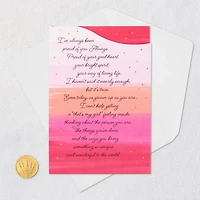 I've always been
proud of you. Always.
Proud of your good heart,
your bright spirit,
your way of living life.
I haven't said it nearly enough,
but it's true.
Even today, as grown up as you are,
I can't help getting
a "that's my girl" feeling inside
thinking about the person you are,
the things you've done,
and the ways you bring
something so unique
and wonderful to the world.